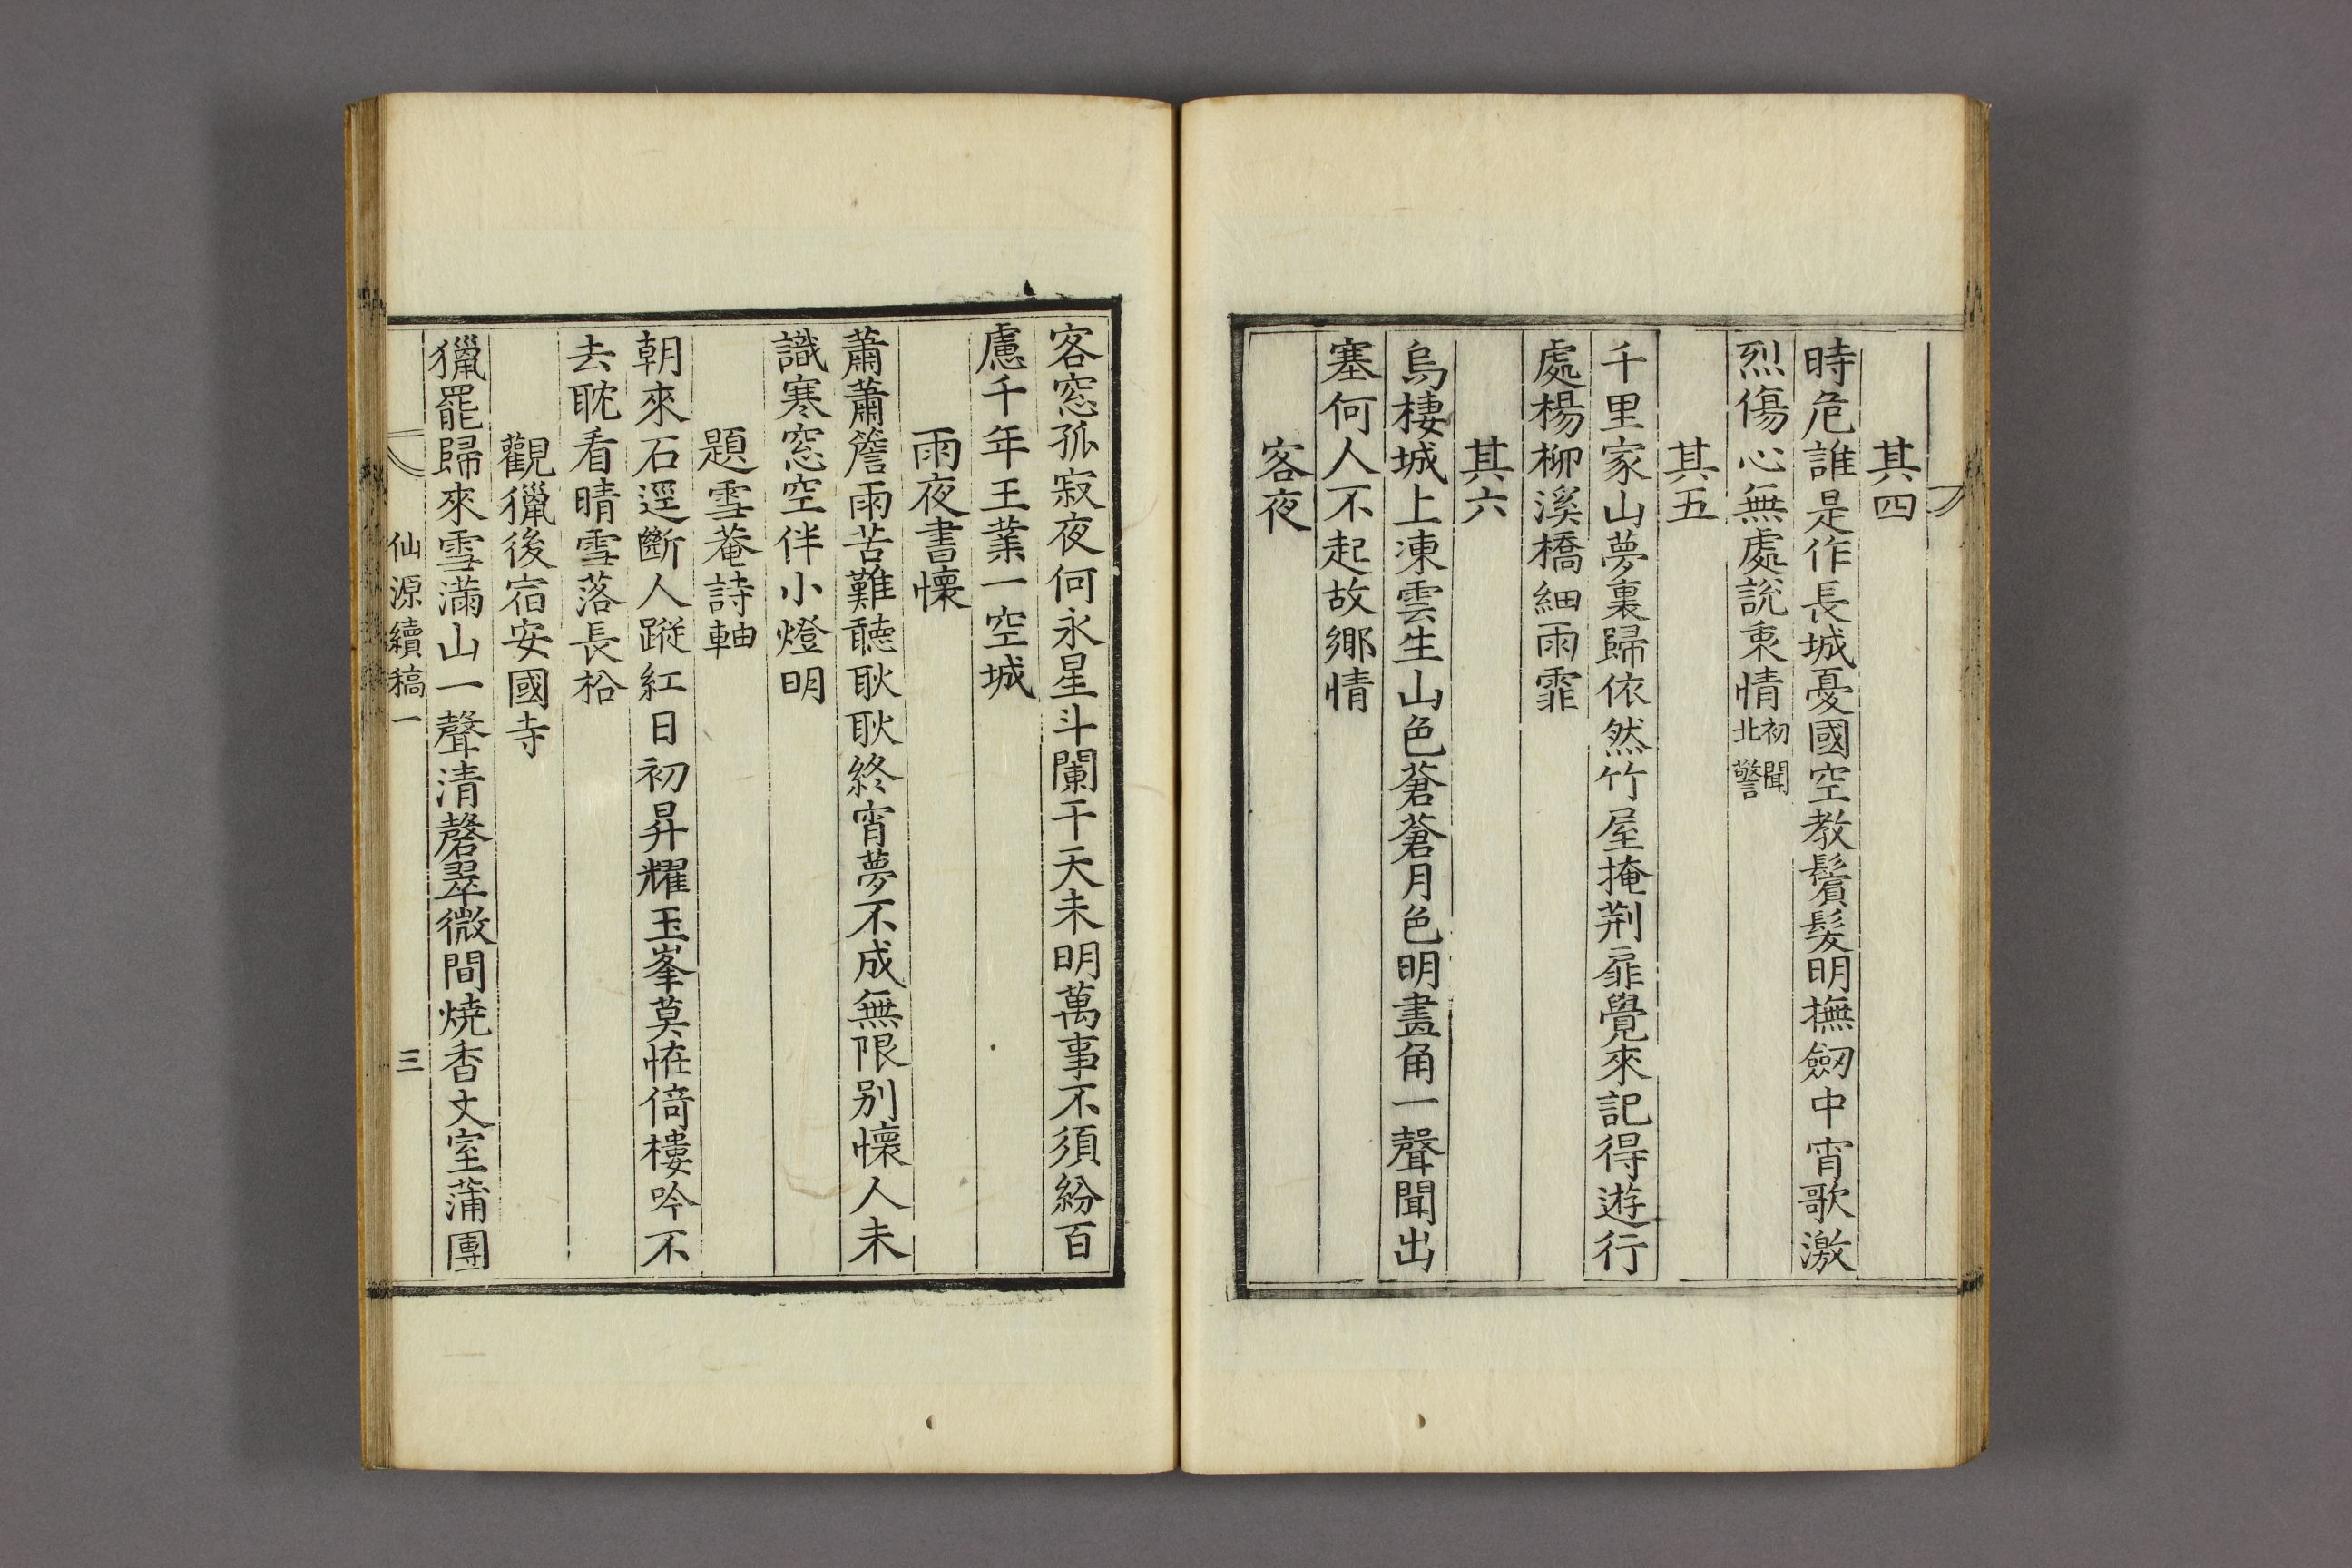 其四
時危誰是作長城憂國空教鬢髮明撫劒中宵歌激
烈傷心無處說衷情初聞北警
其五
千里家山夢裏歸依然竹屋掩荆扉覺來記得遊行
處楊柳溪橋細雨霏
其六
烏棲城上凍雲生山色蒼蒼月色明畫角一聲聞出
塞何人不起故鄉情
客夜
客窓孤寂夜何永星斗闌干天未明萬事不須紛百
慮千年王業一空城
雨夜書懷
蕭蕭簷雨苦難聽耿耿終宵夢不成無限別懷人未
識寒窓空伴小燈明
題雪菴詩軸
朝來石逕斷人蹤紅日初昇耀玉峯莫恠倚樓吟不
去耽看晴雪落長松
觀獵後宿安國寺
獵罷歸來雪滿山一聲清磬翠微間燒香丈室蒲團
仙源續稿一 三